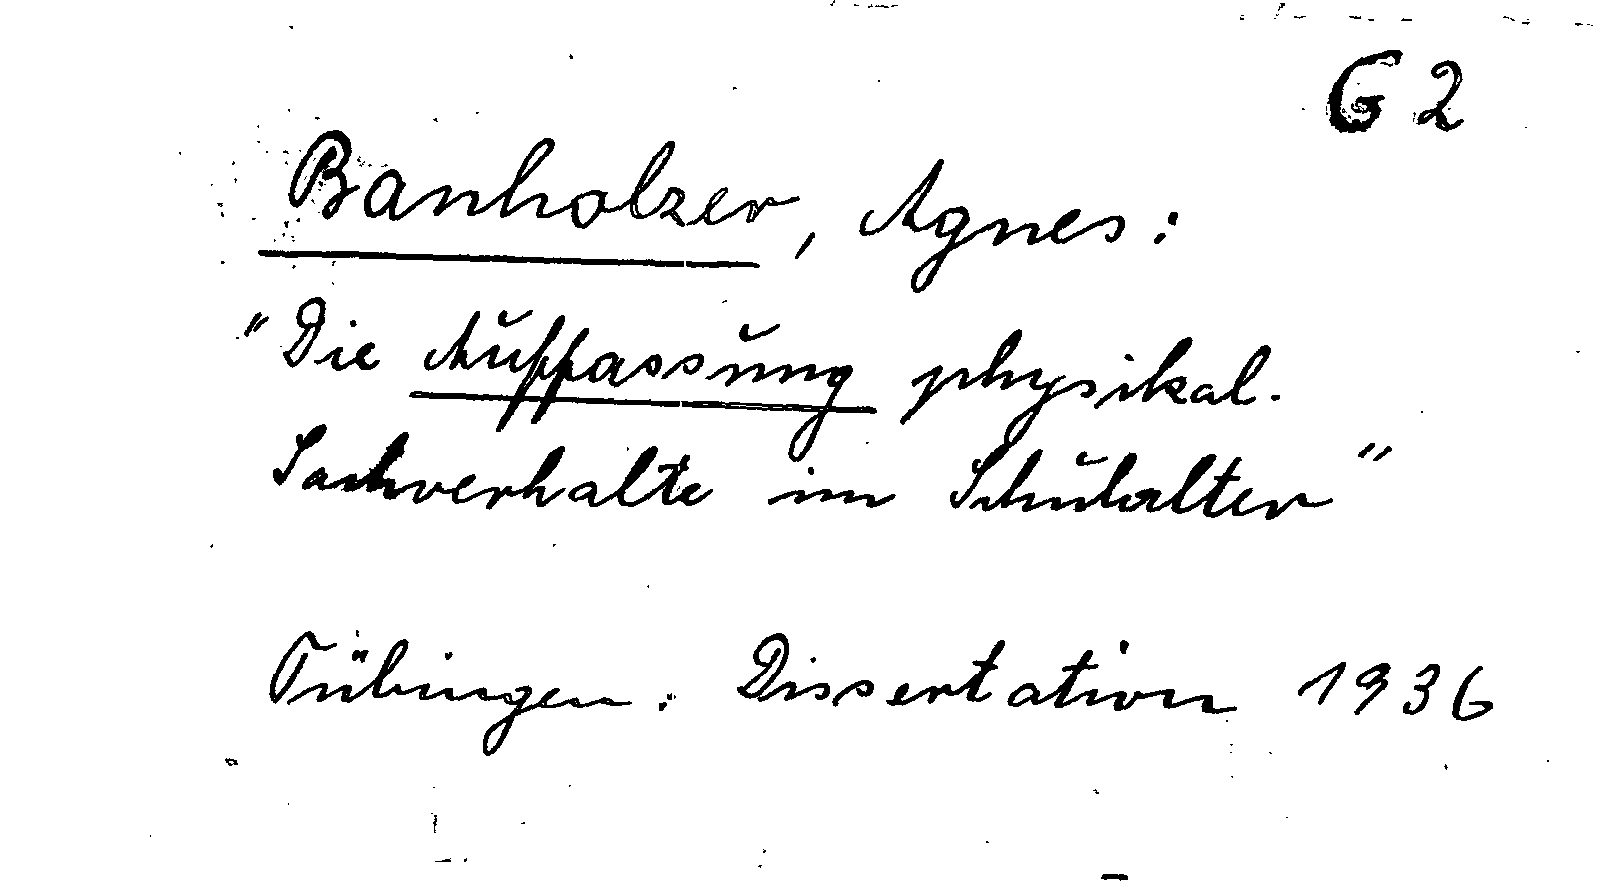 G 2
Banholzer, Agnes:
"Die Auffassung physikal.
Sachverhalte im Schulalter"
Tübingen: Dissertation 1936